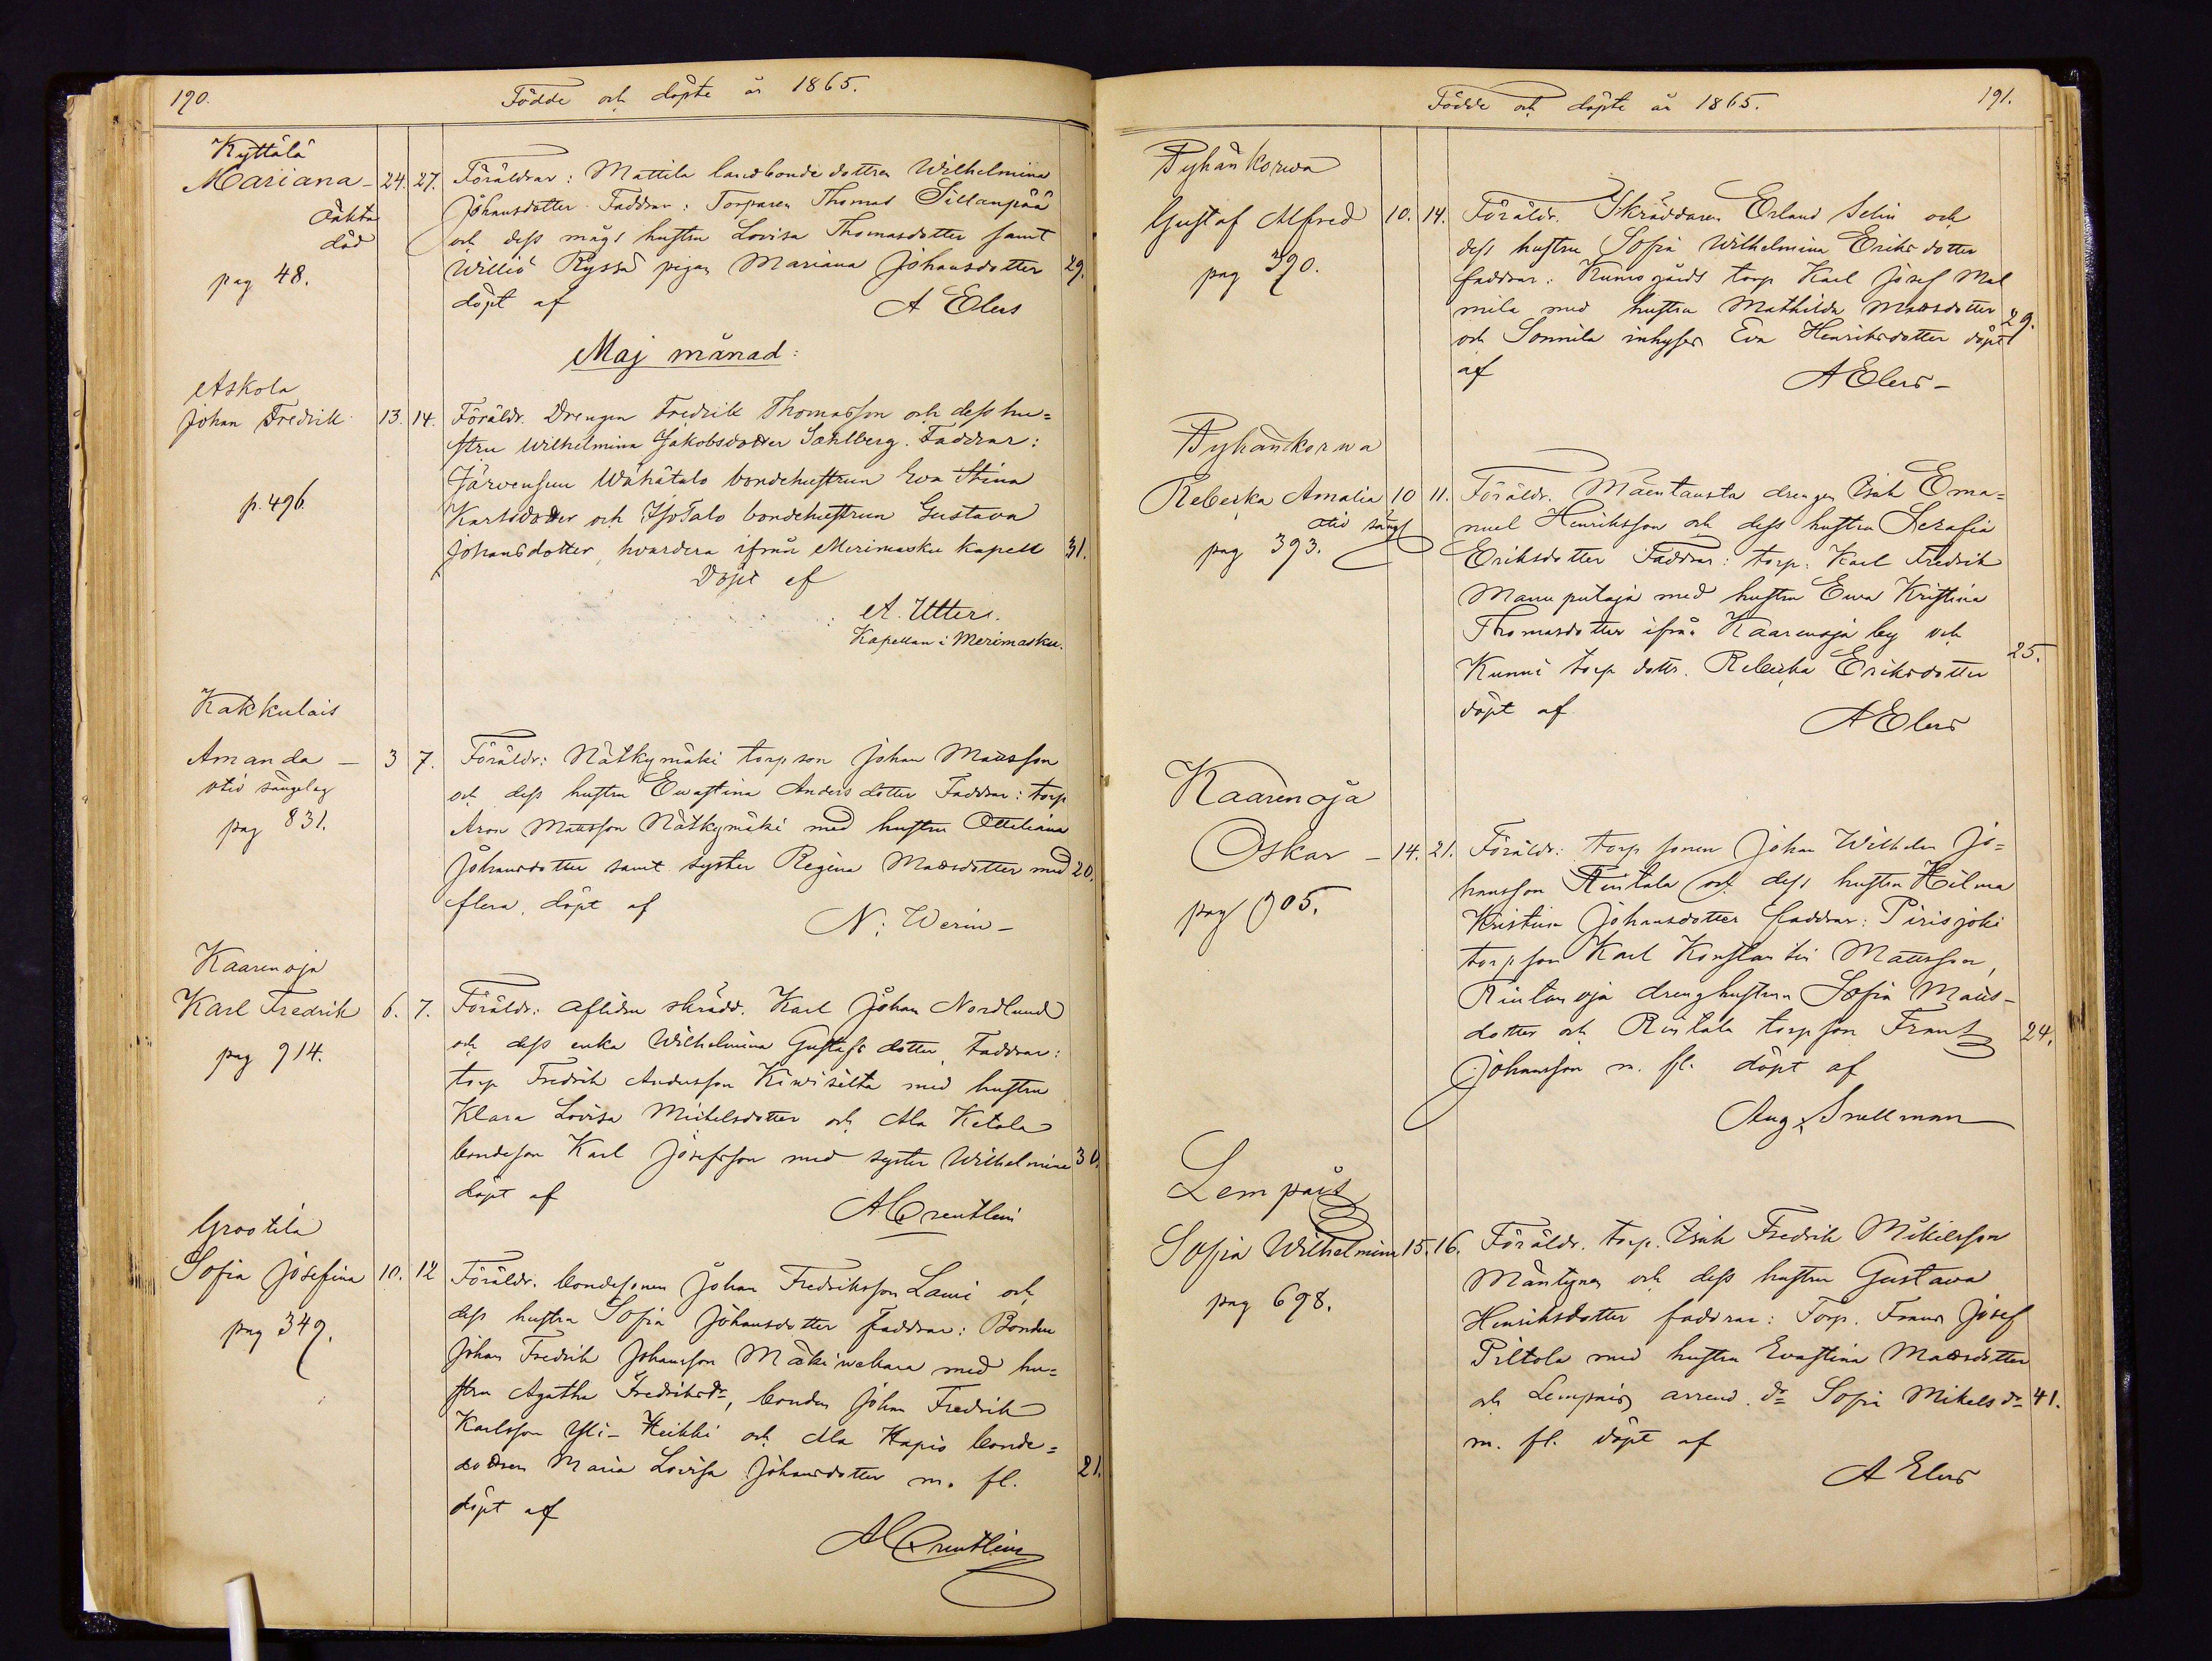 190.
Födde och döpte år 1865.
Kyttälä
Mariana - 24. 27. Föräldrar: Mattila landbonde dottren Wilhelmina
oäkta Johansdotter Faddrar: Torparen Thomas Sillanpää
död och dess mågs hustru Lovisa Thomasdotter samt
pag 48. Williö Ryssä pigan Mariana Johansdotter 29.
döpt af A Elers
Maj månad:
Askola
Johan Fredrik 13. 14. Föräldr. Drengen Fredrik Thomasson och dess hu=
stru Wilhelmina Jakobsdotter Sahlberg. Faddrar:
Järvensuu Wähätalo bondehustrun Eva Stina
p. 496. Karlsdotter och IsoTalo bondehustrun Gustava
Johansdotter, hvardera ifrån Merimasku Kapell 31.
Döpt af
A. Utter.
Kapellan i Merimasku.
Kakkulais
Amanda - 3 7. Föräldr: Nätkymäki torpson Johan Mattsson
otid sängelag och dess hustru Ewastina Anders dotter Faddrar: torp
pag 831. Aron Mattsson Nätkymäki med hustru Ottiliana
Johansdotter samt syster Regina Mattsdotter med 20.
flera, döpt af N: Werin -
Kaarenoja
Karl Fredrik 6. 7. Föräldr: aflidne skrädd. Karl Johan Nordlund
pag 914. och dess enka Wilhelmina Gustafs dotter Faddrar:
torp Fredrik Andersson Kiwisilta med hustru
Klara Lovisa Mickelsdotter och Ala Ketola
bondeson Karl Josefsson med syster Wilhelmina 30.
döpt af
Grootila
Sofia Josefina 10. 12 Föräldr. bondesonen Johan Fredriksson Lawi och
pag 349. dess hustru Sofia Johansdotter faddrar: Bonden
Johan Fredrik Johansson Mäkiwehara med hu=
stru Agatha Fredriksdr, bonden Johan Fredrik
Karlsson Yli-Heikki och Ala Hapio bonde=
dottren Maria Lovisa Johansdotter m. fl. 21.
döpt af
Födde och döpte år 1865.
191.
Pyhänkorwa
Gustaf Alfred 10. 14. Föräldr. Skräddaren Erland Selin och
pag 390. dess hustru Sofia Wilhelmina Eriks dotter
faddrar: Kumogårds torp Karl Josef Mal
mila med hustru Mathilda Mattsdotter 29.
och Sonnila inhyses Eva Henriksdotter döpt
af A Elers -
Pyhänkorwa
Rebecka Amalia 10 11. Föräldr. Mäentausta drengen Isak Ema=
otid säng nuel Henriksson och dess hustru Serafia
pag 393. Eriksdotter Faddrar: torp. Karl Fredrik
Manuputaja med hustru Ewa Kristina
Thomasdotter ifrån Kaarenoja by och
Kunni torp dottr. Rebecka Eriksdotter 25.
döpt af A Elers
Kaarenoja
Oskar - 14. 21. Föräldr: torp sonen Johan Wilhelm Jo=
pag 905. hansson Rintala och dess hustru Hilma
Kristina Johansdotter faddrar: Pirisjoki
torpson Karl Konstantin Mattsson,
Rintanoja drenghustrun Sofia Matts-
dotter och Rintala torpson Frans 24.
Johansson m. fl. döpt af
Aug. Snellman
Lempäis
Sofia Wilhelmina 15. 16. Föräldr. torp. Isak Fredrik Mikelsson
pag 698. Mäntynen och dess hustru Gustava
Henriksdotter faddrar: Torp. Frans Josef
Piltola med hustru Evastina Mattsdotter
och Lempäis arrend. dr Sofia Mikels dr 41.
m. fl. döpt af
A Elers